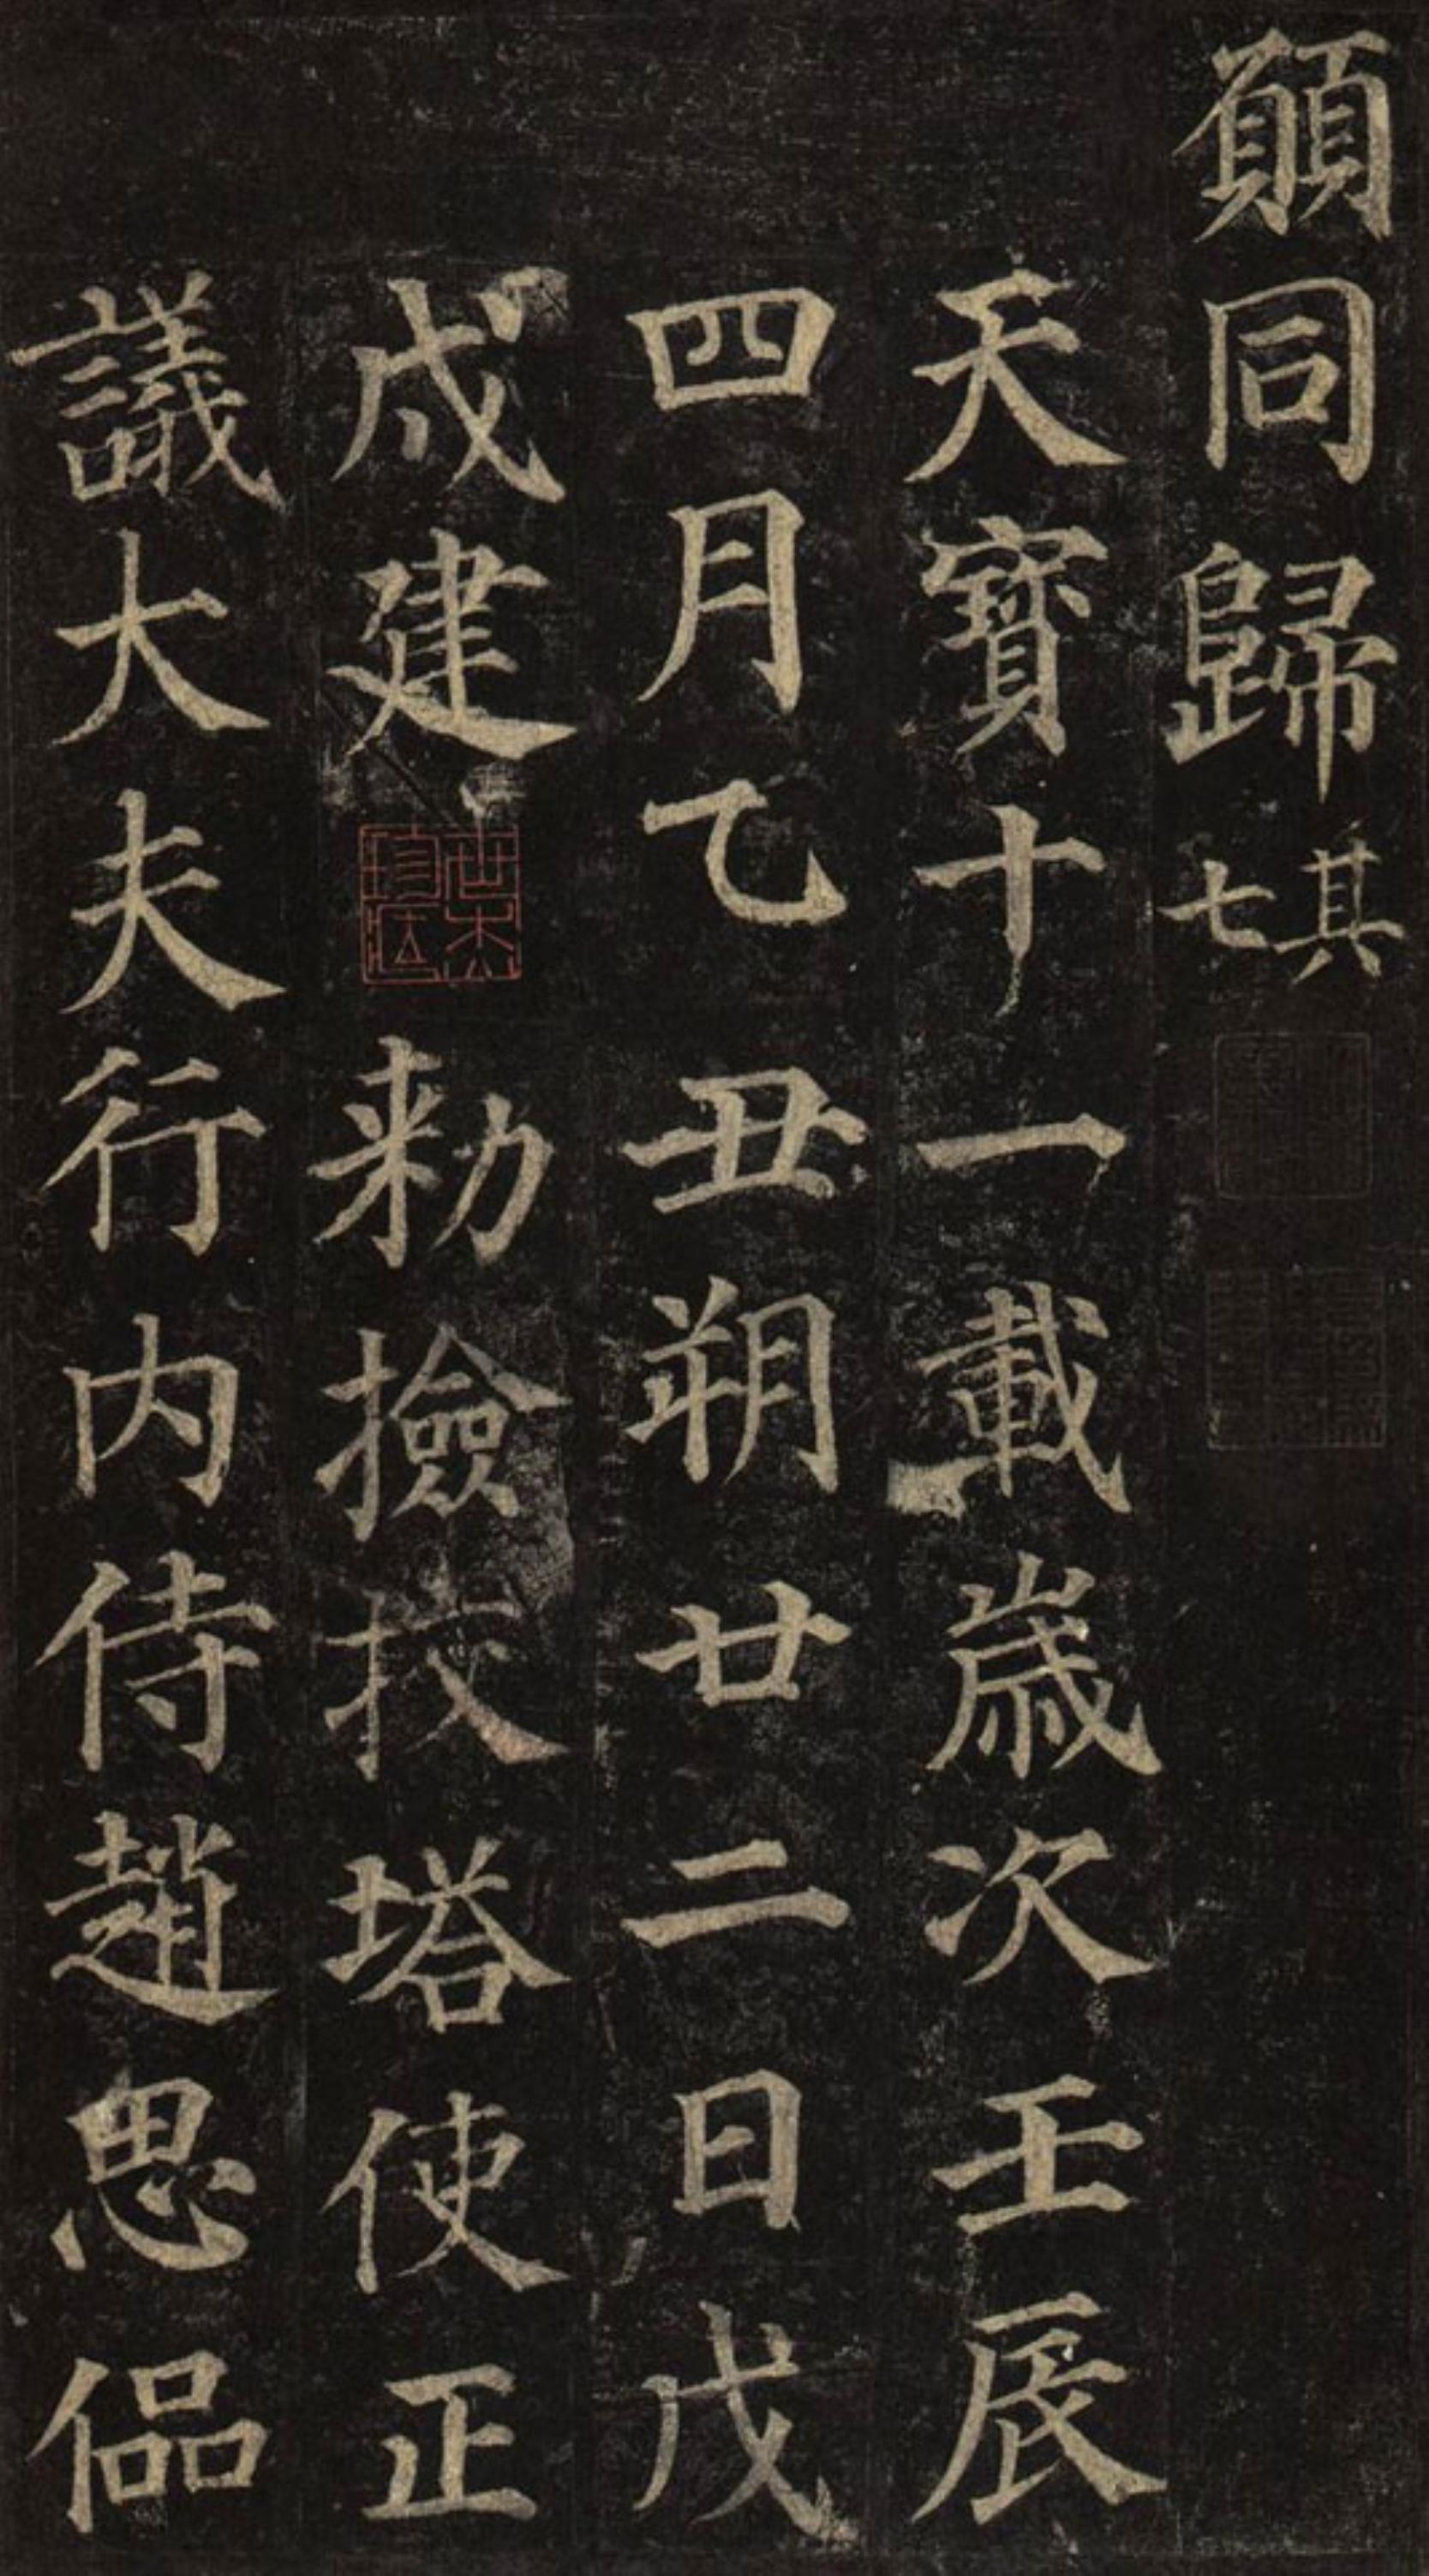 願同歸其七
天寶十一載歲次壬辰
四月乙丑朔廿二日戊
戌建 勑撿挍塔使正
議大夫行内侍趙思偘